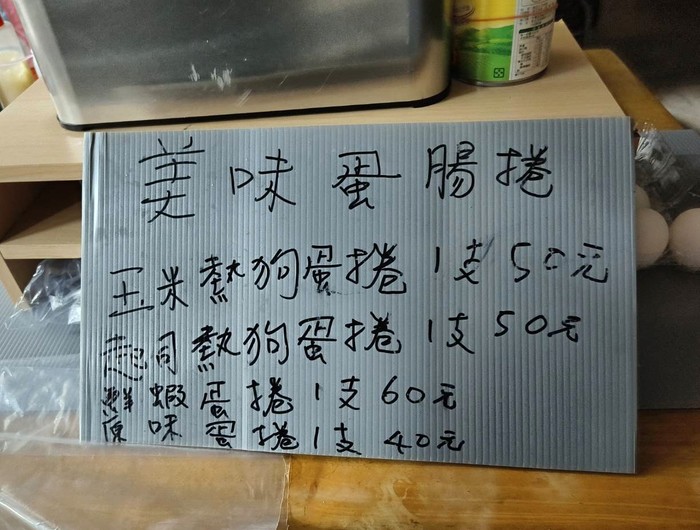 美味蛋腸捲
玉米熱狗蛋捲1支50元
起司熱狗蛋捲1支50元
鮮蝦蛋捲1支60元
原味蛋捲1支40元